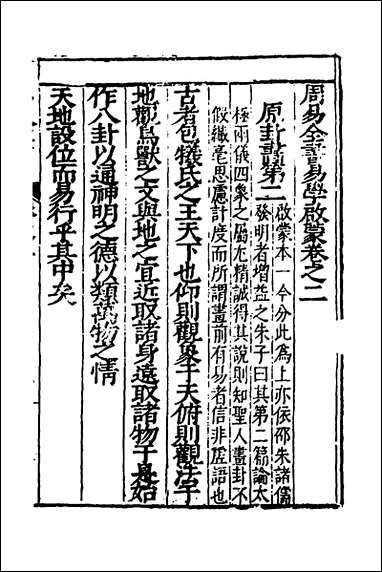 周易全書易學啟蒙卷之二
原卦畫第二
啟蒙本一今分此為上亦依邵朱諸儒
發明者增益之朱子曰其第二篇論太
極兩儀四象之屬尤精誠得其說則知聖人畫卦不
假纖毫思慮計度而所謂畫前有易者信非虛語也
古者包犧氏之王天下也仰則觀象于天俯則觀法于
地觀鳥獸之文與地之宜近取諸身遠取諸物于是始
作八卦以通神明之德以類萬物之情
天地設位而易行乎其中矣